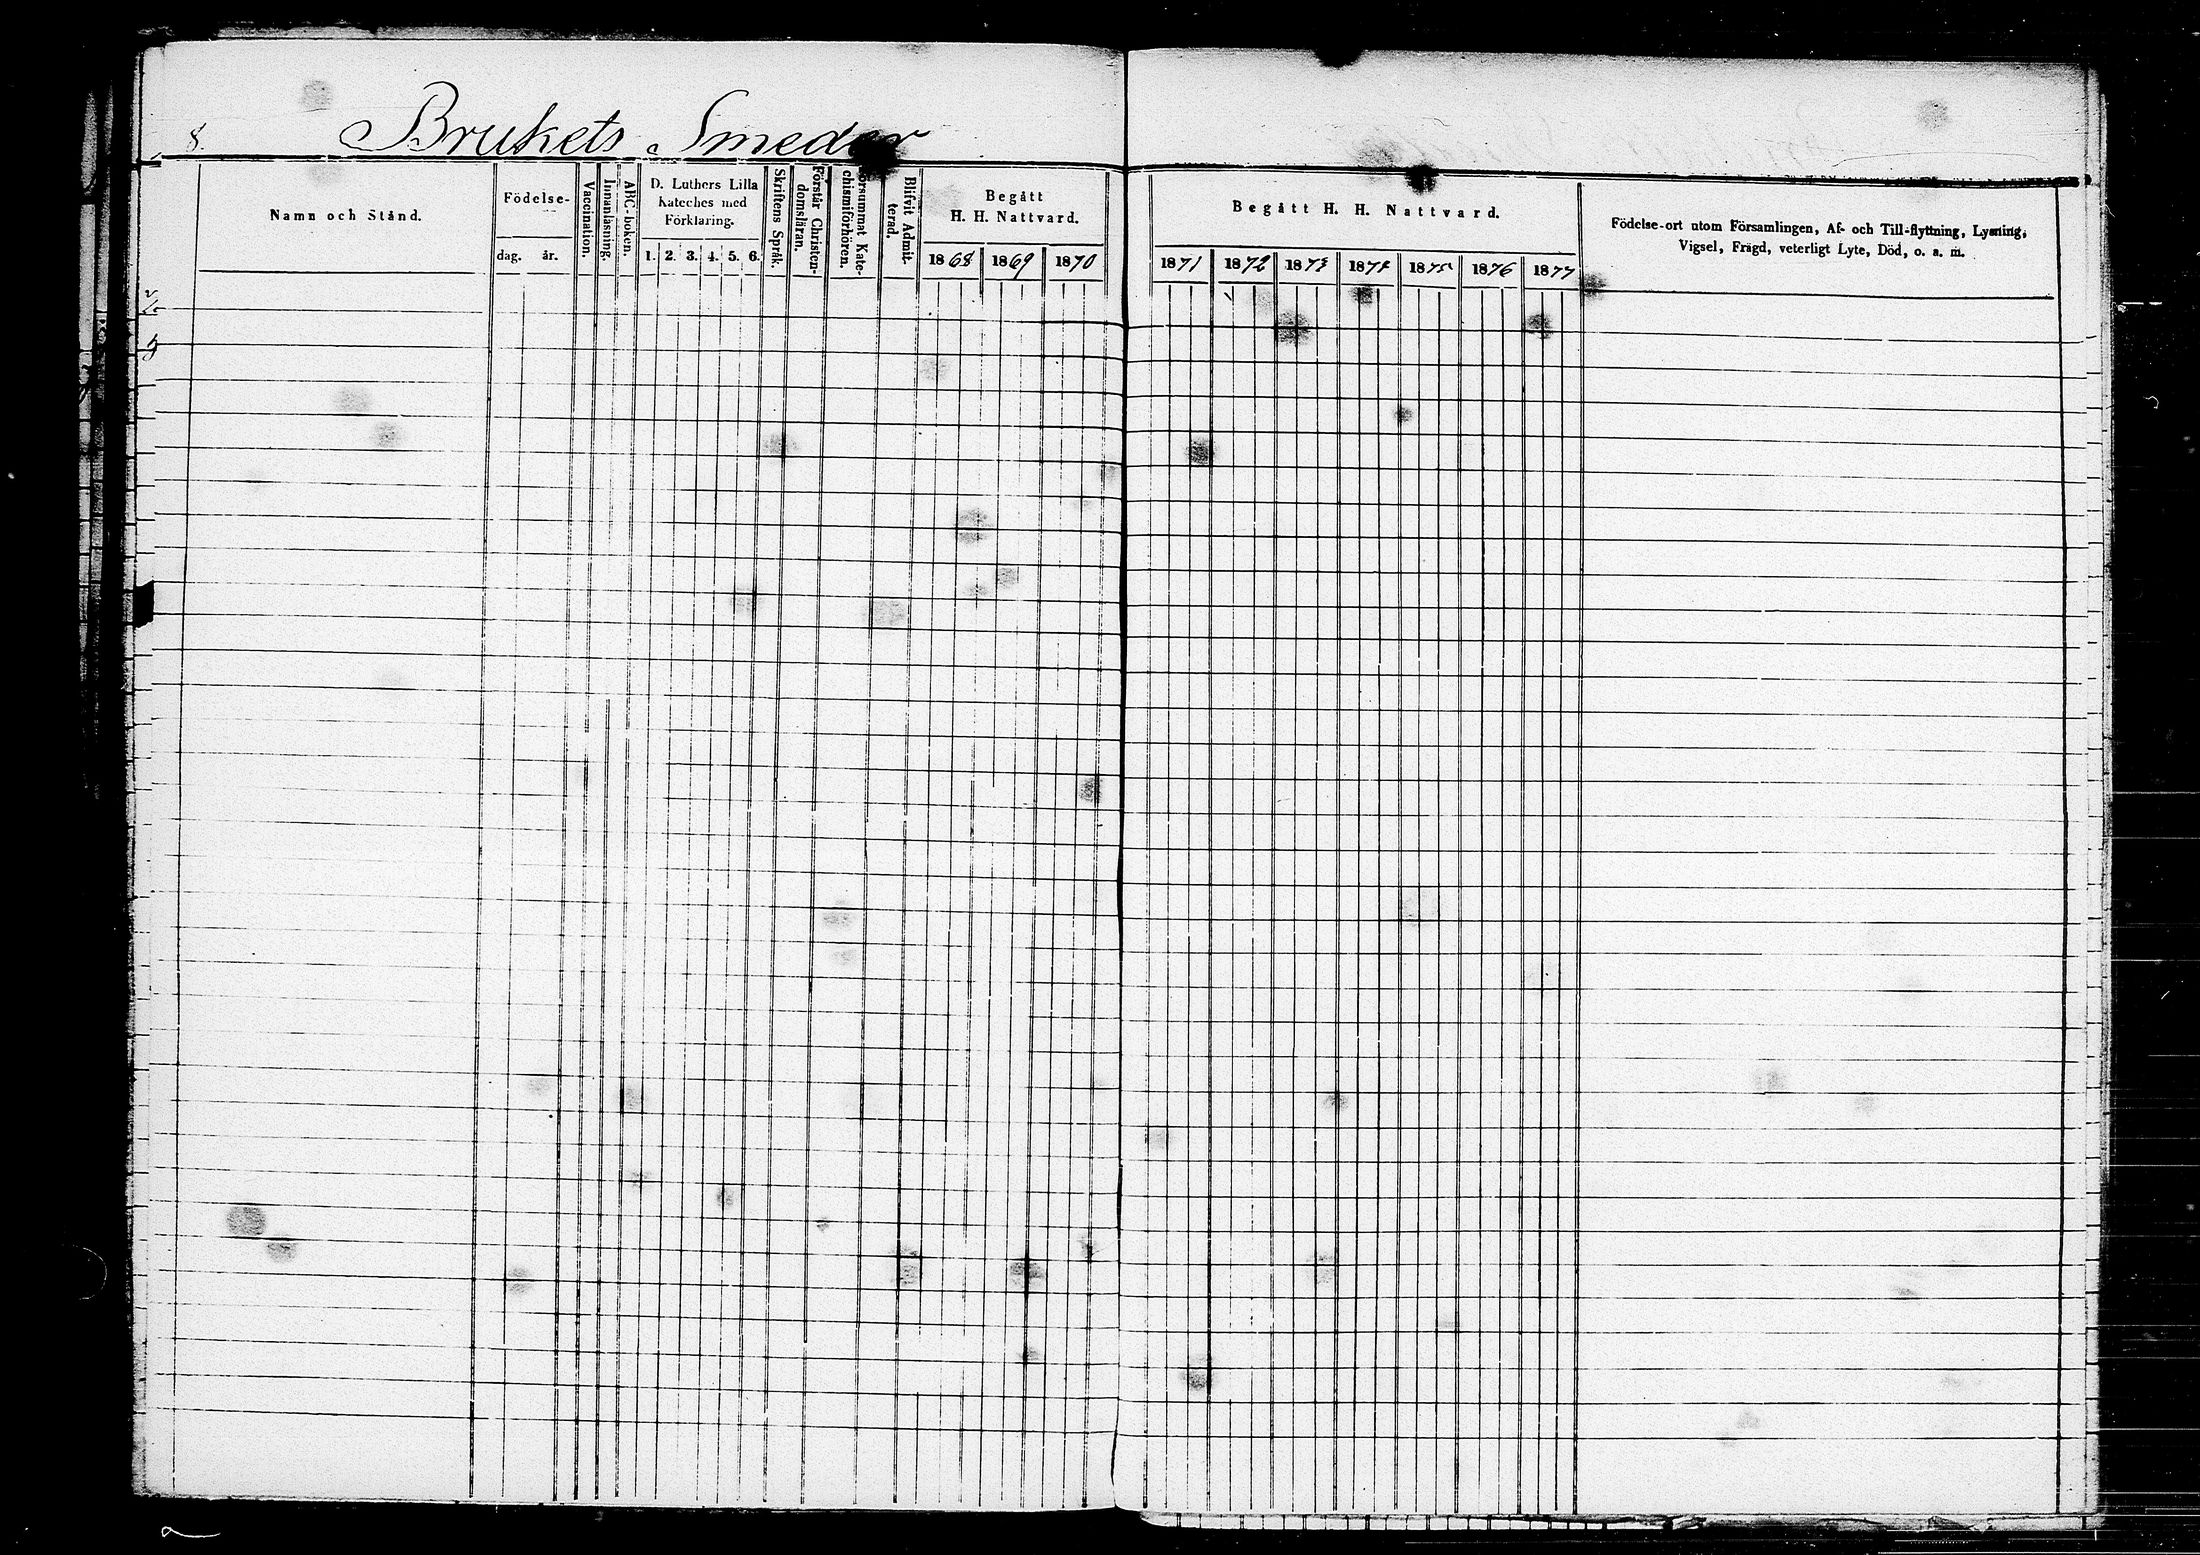 8. Brukets Smeder
Namn och Stånd.
Födelse-
dag. år.
Vaccination.
Innanläsning.
ABC-boken.
D. Luthers Lilla
Kateches med
Förklaring.
1. 2. 3. 4. 5. 6.
Skriftens Språk.
Förstår Christen-
domsläran.
Försummat Kate-
chismiförhören.
Blifvit Admit-
terad.
Begått
H. H. Nattvard.
1868 1869 1870
Begått H. H. Nattvard.
1871 1872 1873 1874 1875 1876 1877
Födelse-ort utom Församlingen, Af- och Till-flyttning, Lysning,
Vigsel, Frägd, veterligt Lyte, Död, o. s. m.